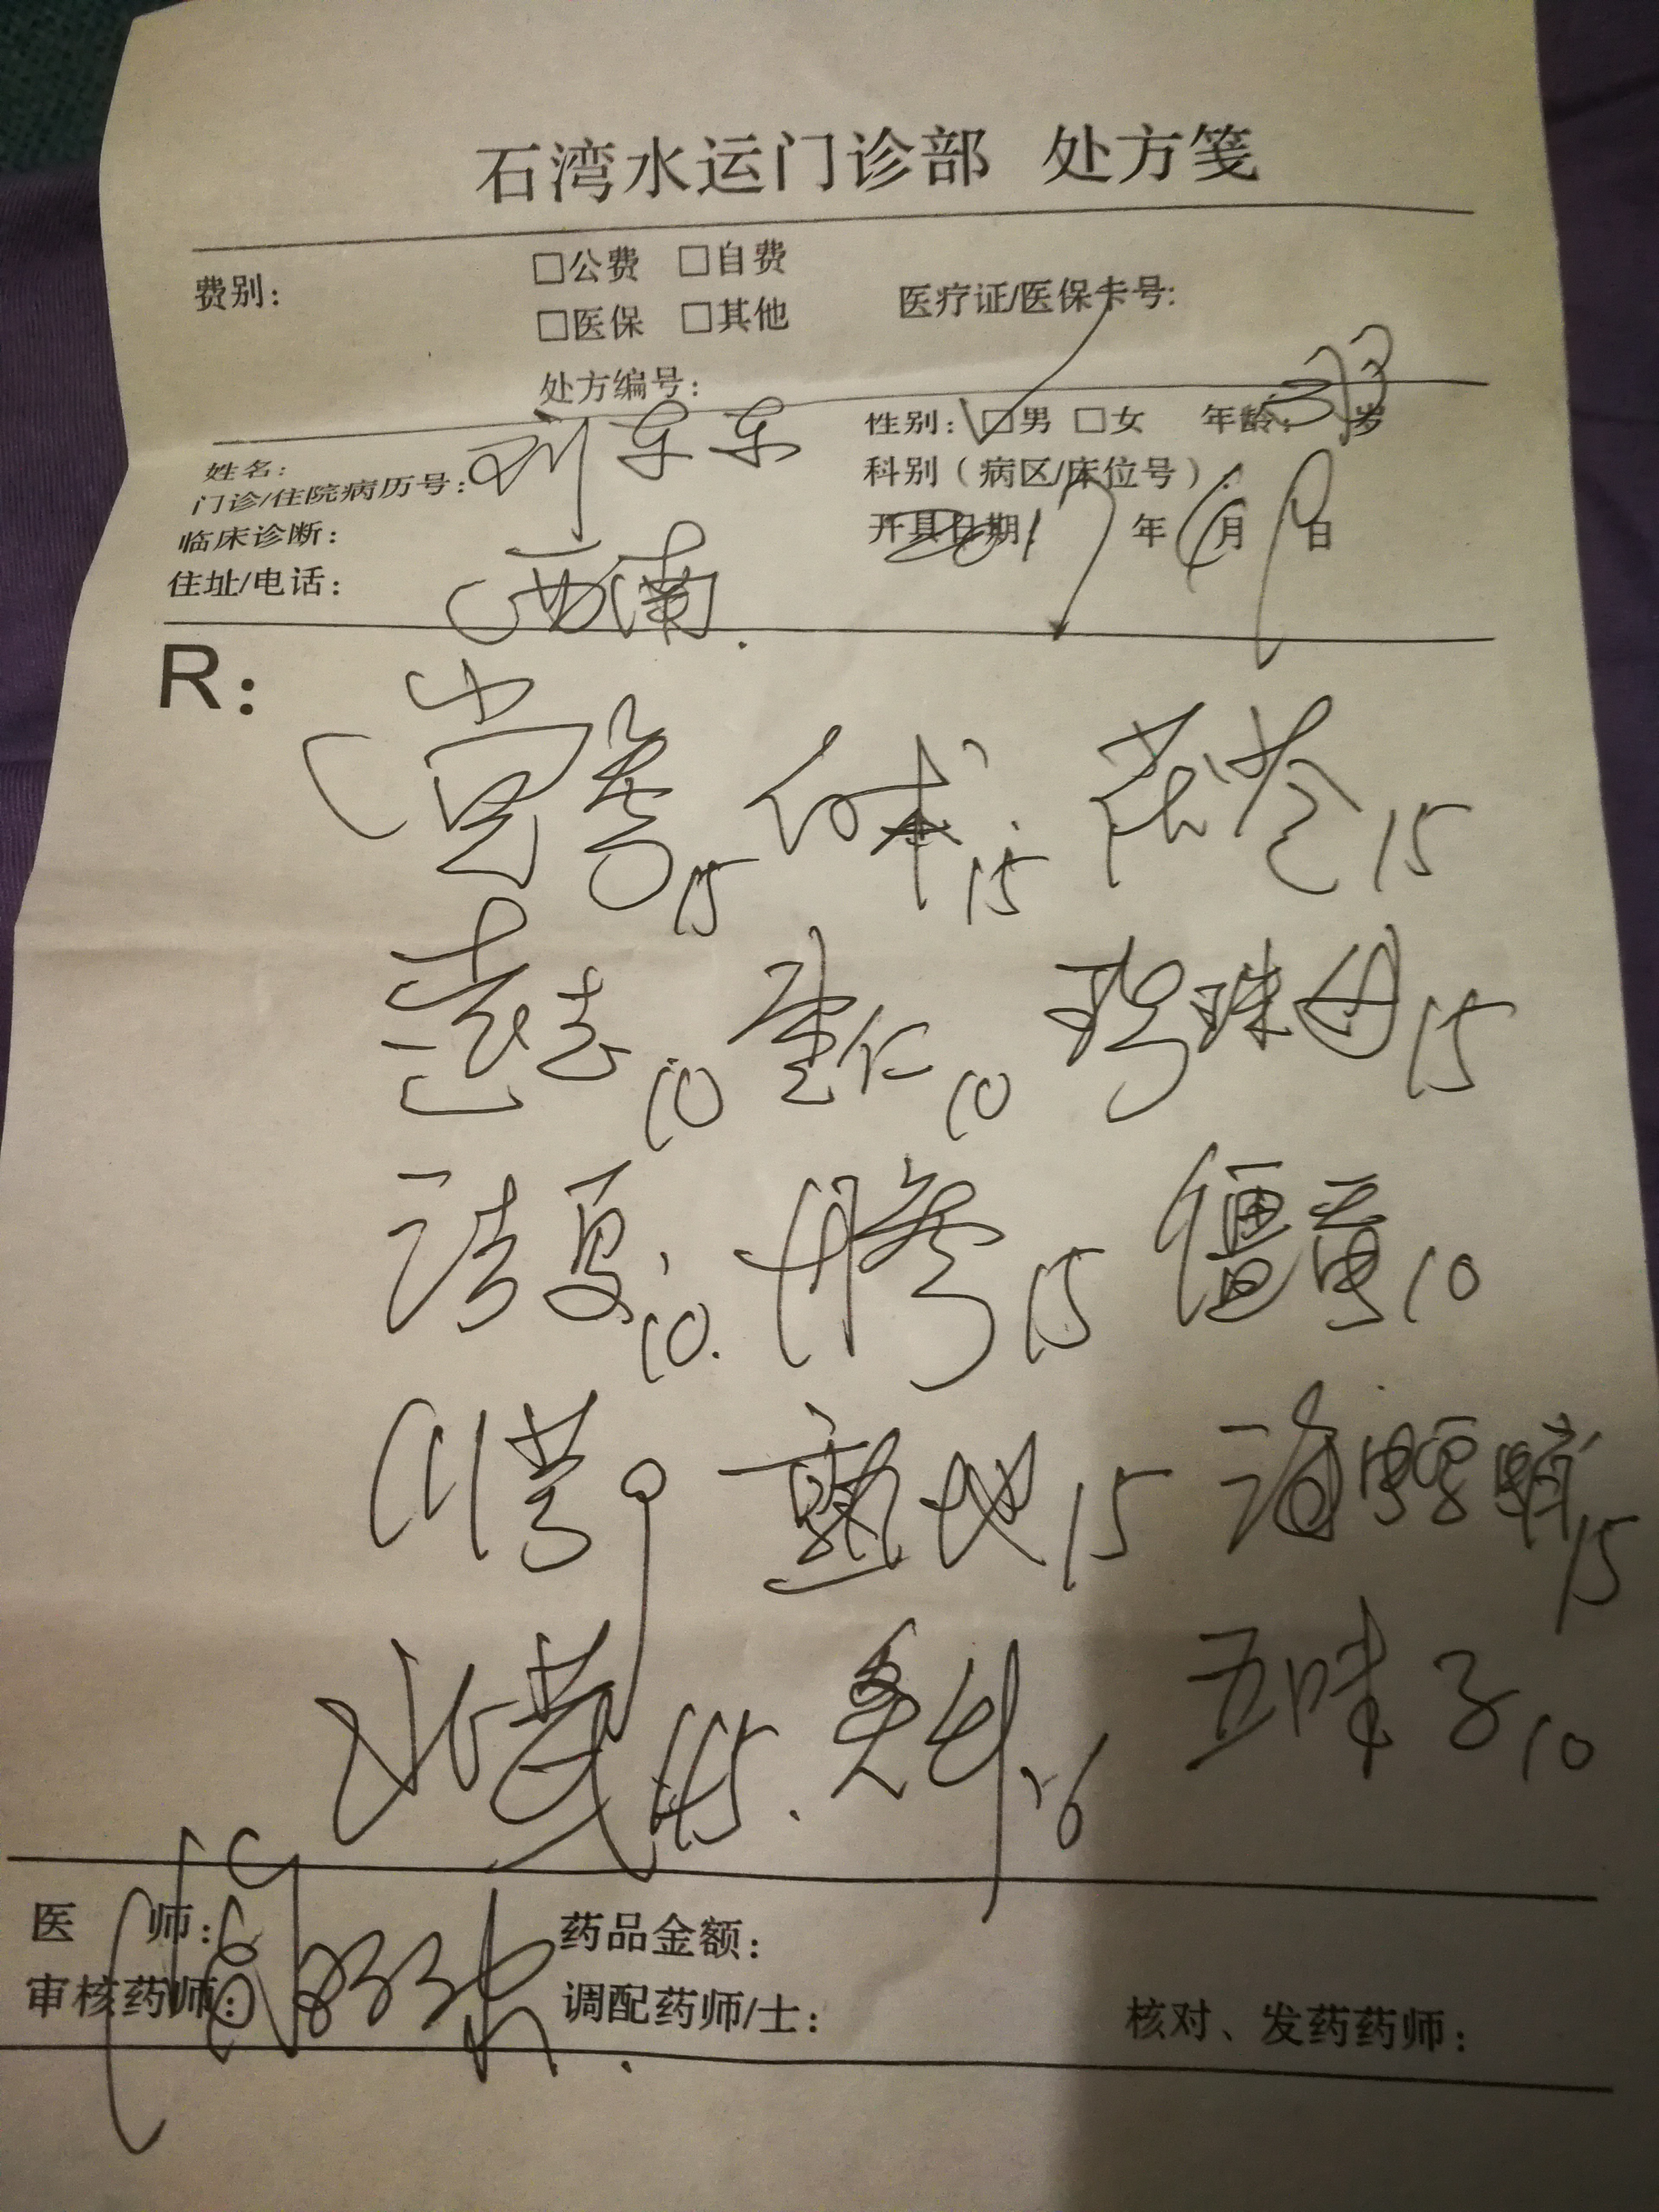 石湾水运门诊部 处方笺
费别: □公费 □自费
□医保 □其他 医疗证/医保卡号:
处方编号:
姓名: 性别: □男 □女 年龄: 33岁
门诊/住院病历号: 科别(病区/床位号):
临床诊断: 开具日期 17年6月9日
住址/电话: 西南.
R:
党参15 白术15 茯苓15
远志10 枣仁10 珍珠母15
法夏10. 丹参15 僵蚕10
川芎 熟地15 海螵蛸15
北芪 15. 6 五味子10
医 师: 药品金额:
审核药师: 调配药师/士: 核对、发药药师: